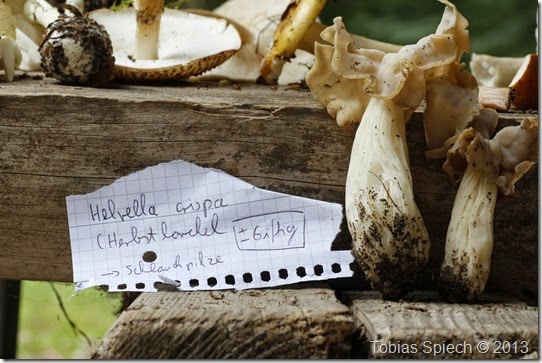 Helvella crispa
(Herbstlorchel
→ Schlauchpilze
Tobias Spiech © 2013